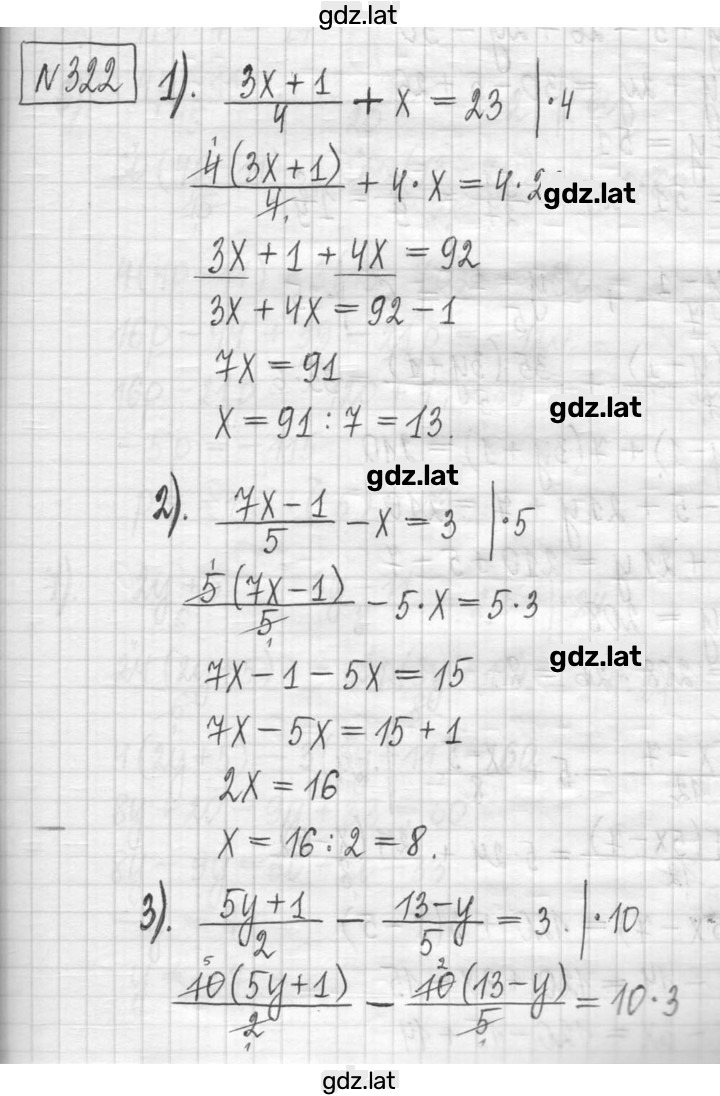 gdz.lat
N322 1). (3x+1)/4 + x = 23 |·4
4(3x+1)/4 + 4·x = 4·2
gdz.lat
3x + 1 + 4x = 92
3x + 4x = 92 - 1
7x = 91
x = 91 : 7 = 13.
gdz.lat
gdz.lat
2). (7x-1)/5 - x = 3 |·5
5(7x-1)/5 - 5·x = 5·3
gdz.lat
7x - 1 - 5x = 15
7x - 5x = 15 + 1
2x = 16
x = 16 : 2 = 8.
3). (5y+1)/2 - (13-y)/5 = 3. |·10
10(5y+1)/2 - 10(13-y)/5 = 10·3
gdz.lat